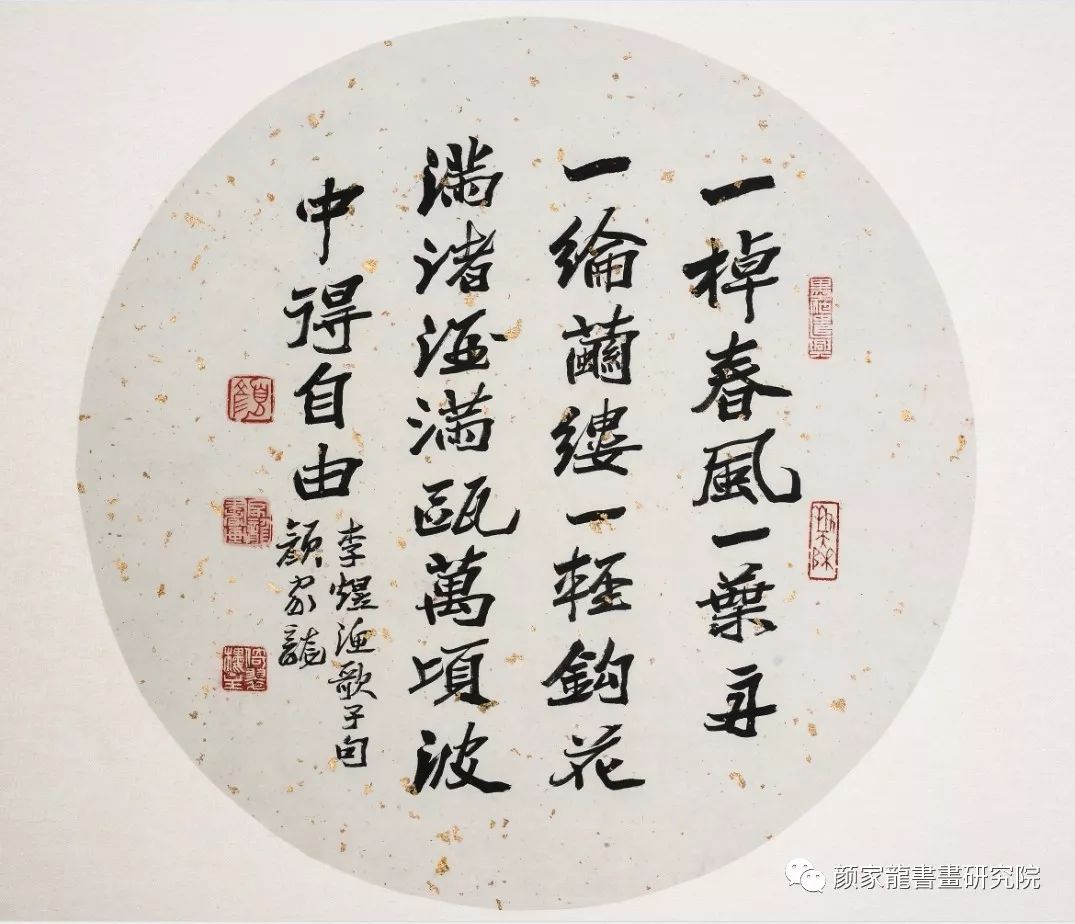 一棹春風一葉舟
一綸繭縷一輕鈎花
滿渚酒滿甌萬頃波
中得自由
李煜漁歌子句
顏家龍
顏
家龍書畫
颜家龍書畫研究院